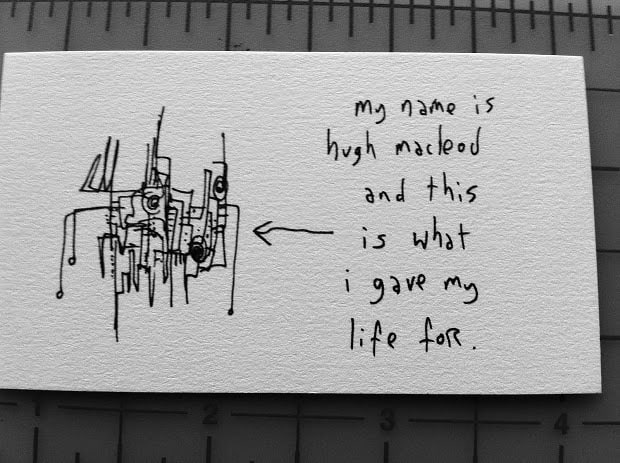 my name is
hugh macleod
and this
is what
i gave my
life for.
2
3
4